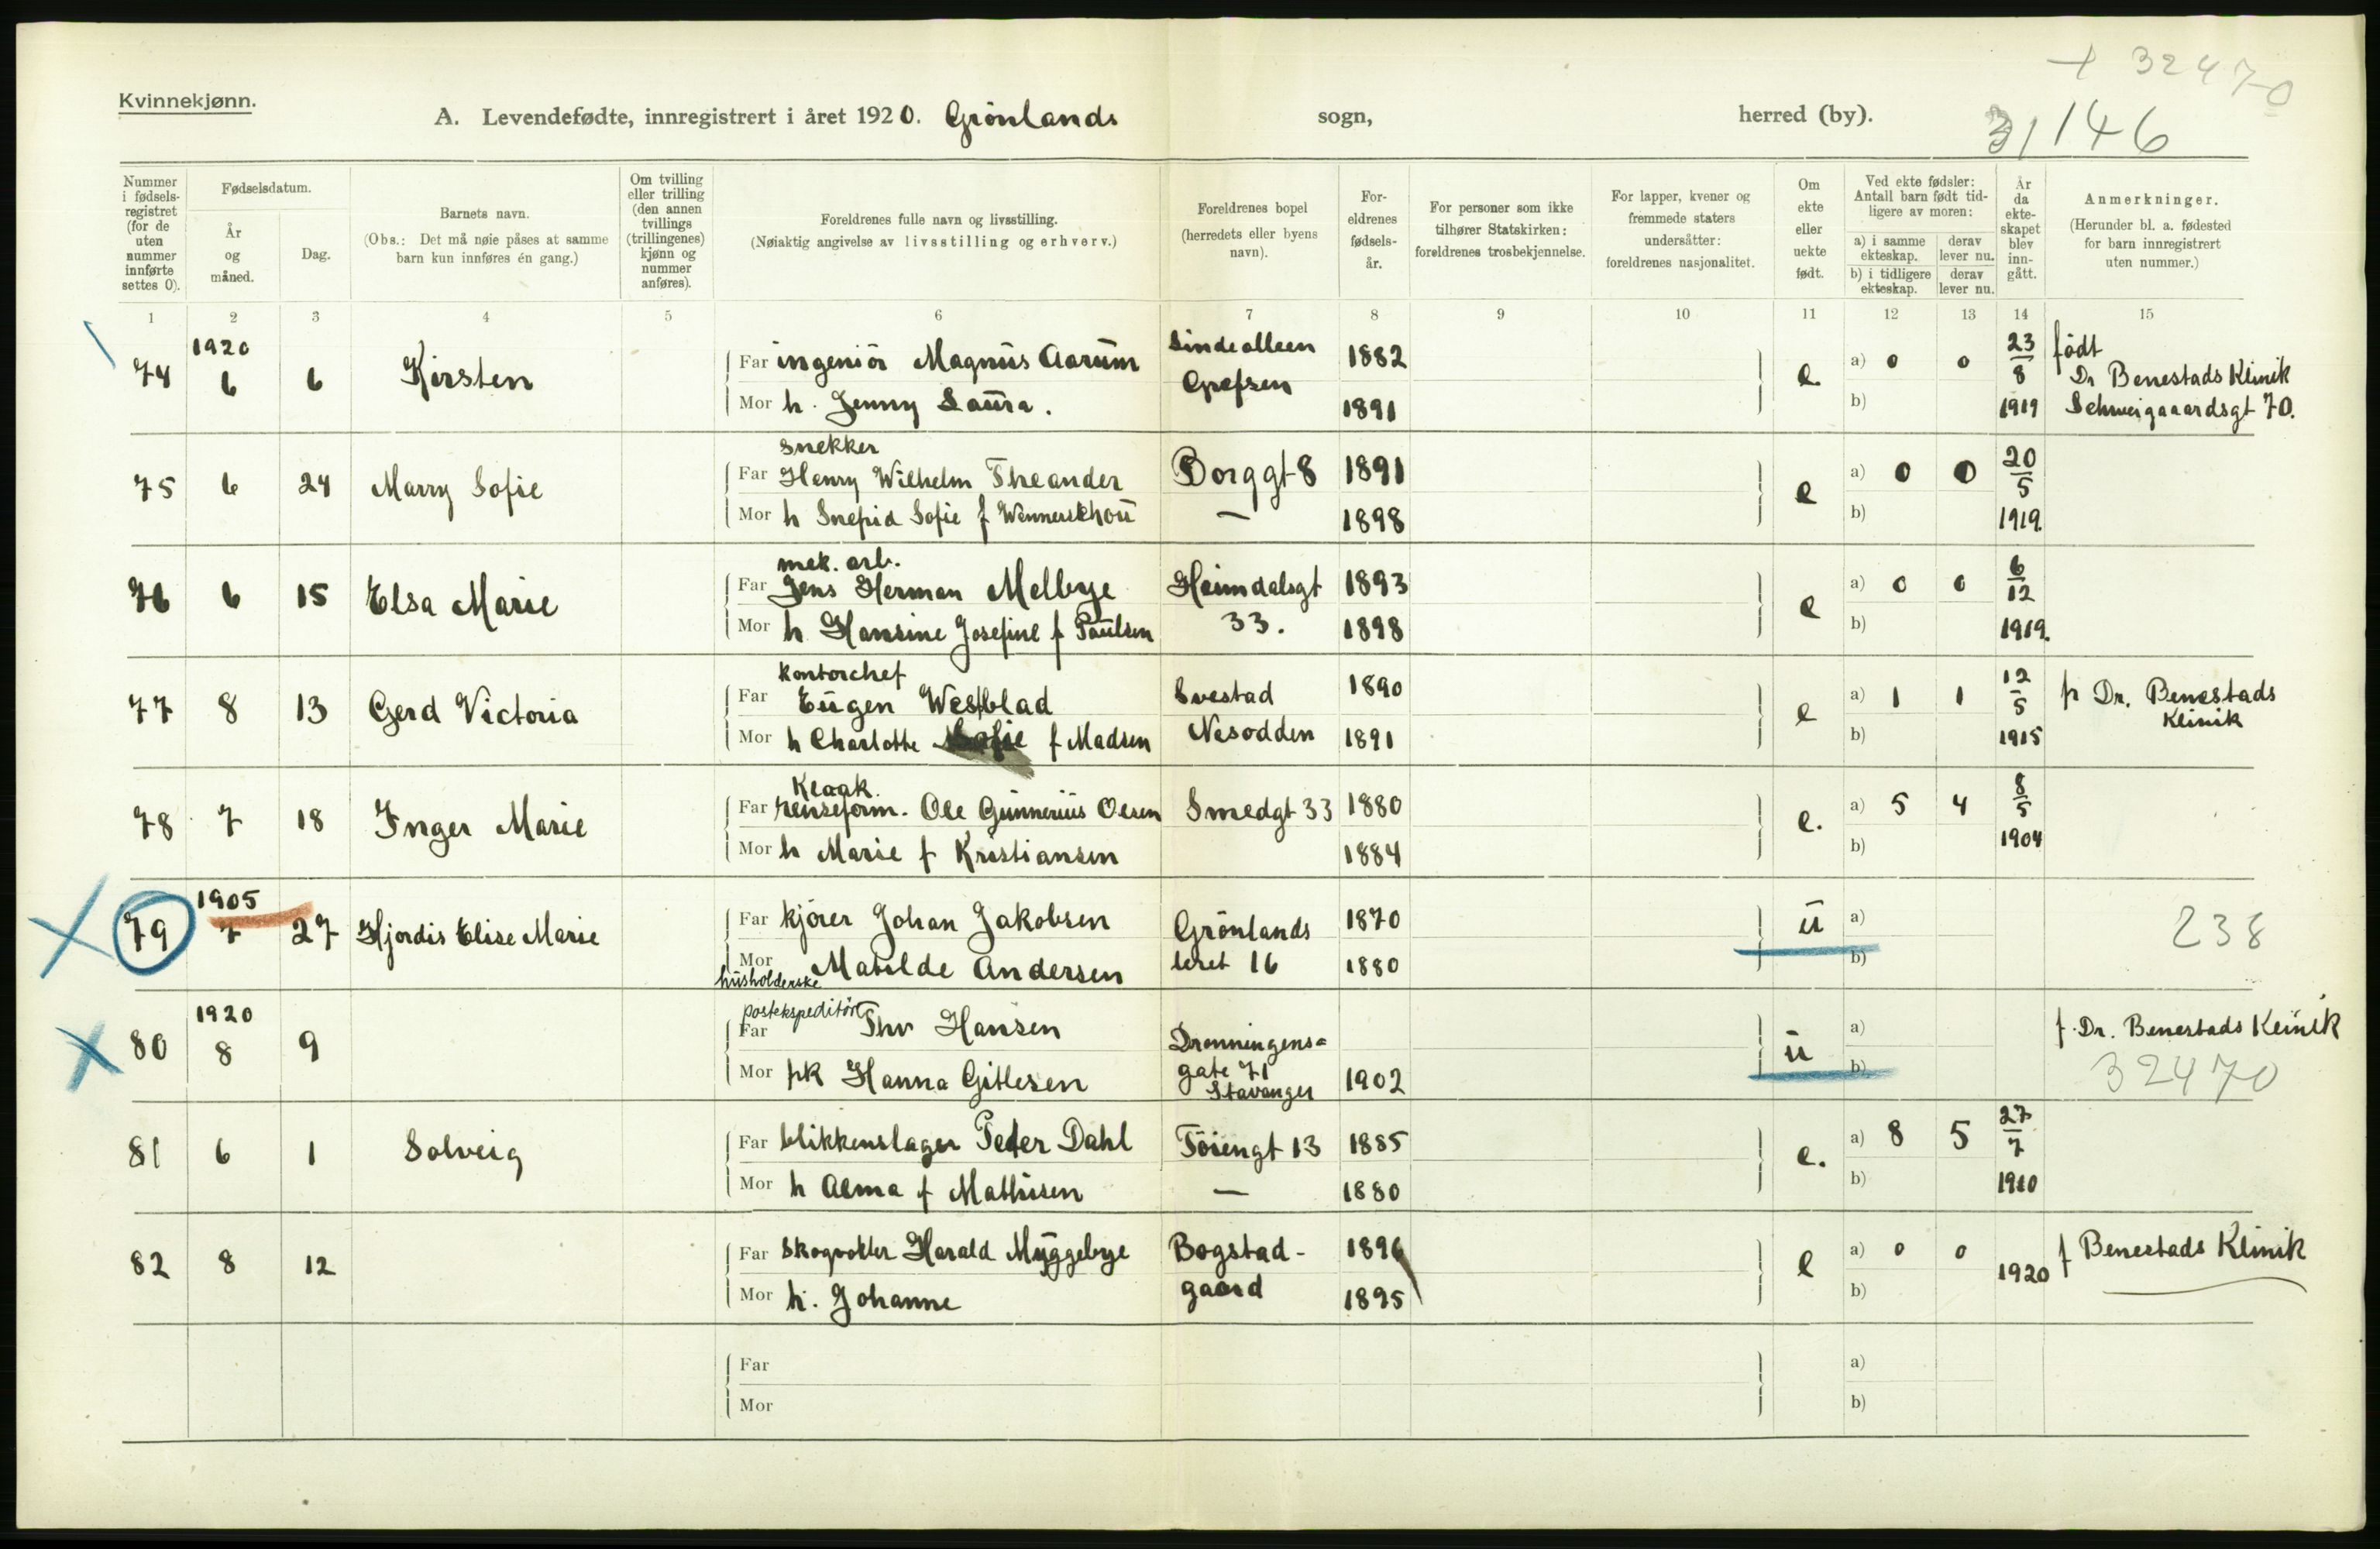 + 32470
Kvinnekjønn.
A. Levendefødte, innregistrert i året 1920. Grönlands sogn, herred (by).
3/146
Nummer i fødselsregistret (for de uten nummer innførte settes 0).
Fødselsdatum.
År og måned.
Dag.
Barnets navn.
(Obs.: Det må nøie påses at samme barn kun innføres én gang.)
Om tvilling eller trilling (den annen tvillings (trillingenes) kjønn og nummer anføres).
Foreldrenes fulle navn og livsstilling.
(Nøiaktig angivelse av livsstilling og erhverv.)
Foreldrenes bopel (herredets eller byens navn).
Foreldrenes fødselsår.
For personer som ikke tilhører Statskirken: foreldrenes trosbekjennelse.
For lapper, kvener og fremmede staters undersåtter: foreldrenes nasjonalitet.
Om ekte eller uekte født.
Ved ekte fødsler: Antall barn født tidligere av moren:
a) i samme ekteskap. derav lever nu.
b) i tidligere ekteskap. derav lever nu.
År da ekteskapet blev inngått.
Anmerkninger.
(Herunder bl. a. fødested for barn innregistrert uten nummer.)
1 2 3 4 5 6 7 8 9 10 11 12 13 14 15
74 1920 6 6 Kirsten
Far ingeniör Magnus Aarum Lindealleen 1882
Mor h. Jenny Laura. Grefsen 1891
e. a) 0 0 b) 23/8 1919
født Dr Benestads Klinik Schweigaaardsgt 70.
75 6 24 Marry Sofie
snekker
Far Henry Wilhelm Theander Borggt 8 1891
Mor h Snefrid Sofie f Wennerskhou — 1898
e a) 0 0 b) 20/5 1919.
76 6 15 Elsa Marie
mek. arb.
Far Jens Herman Melbye Heimdalsgt 1893
Mor h Hansine Josefine f Paulsen 33. 1898
e a) 0 0 b) 6/12 1919.
77 8 13 Gerd Victoria
kontorchef
Far Eugen Westblad Svestad 1890
Mor h Charlotte Sofie f Madsen Nesodden 1891
e a) 1 1 b) 12/5 1915
Dr. Benestads Klinik
78 7 18 Inger Marie
Kloak.
Far renseform. Ole Gunnerius Olsen Smedgt 33 1880
Mor h Marie f Kristiansen 1884
e. a) 5 4 b) 8/5 1904
79 1905 7 27 Hjordis Elise Marie
Far kjörer Johan Jakobsen Grönlands 1870
Mor husholderske Matilde Andersen leret 16 1880
u a) b)
238
80 1920 8 9
postekspeditör
Far Thv Hansen Dronningens-
Mor pk Hanna Gitlesen gate 71 Stavanger 1902
u a) b)
f. Dr. Benestads Klinik
32470
81 6 1 Solveig
Far blikkenslager Peder Dahl Töiengt 13 1885
Mor h Alma f Mathisen — 1880
e. a) 8 5 b) 27/7 1910
82 8 12
Far skogvokter Harald Myggebye Bogstad- 1896
Mor h. Johanne gaard 1895
e a) 0 0 b) 1920
f Benestads Klinik
Far
Mor
a)
b)